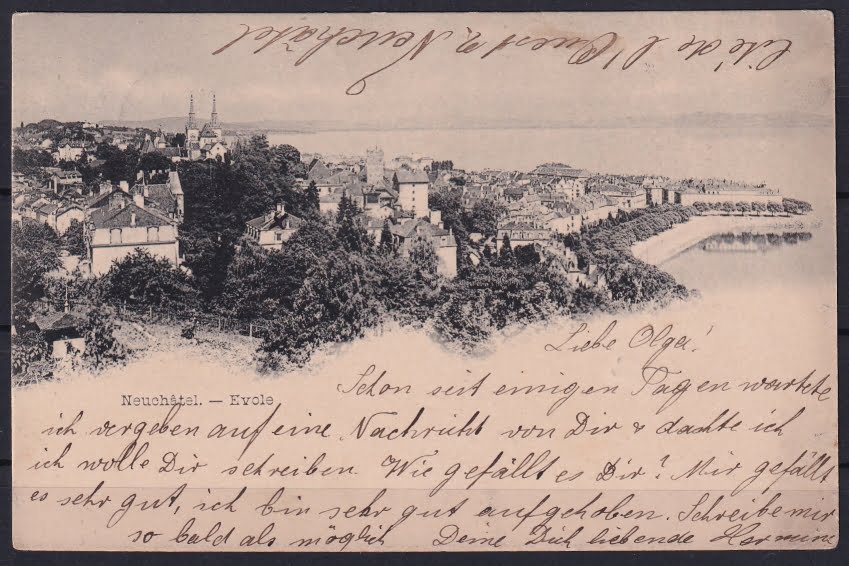 Cité de l'Ouest 2, Neuchâtel
Neuchâtel. — Evole
Liebe Olga!
Schon seit einigen Tagen wartete
ich vergeben auf eine Nachricht von Dir & dachte ich
ich wolle Dir schreiben. Wie gefällt es Dir? Mir gefällt
es sehr gut, ich bin sehr gut aufgehoben. Schreibe mir
so bald als möglich Deine Dich liebende Hermine